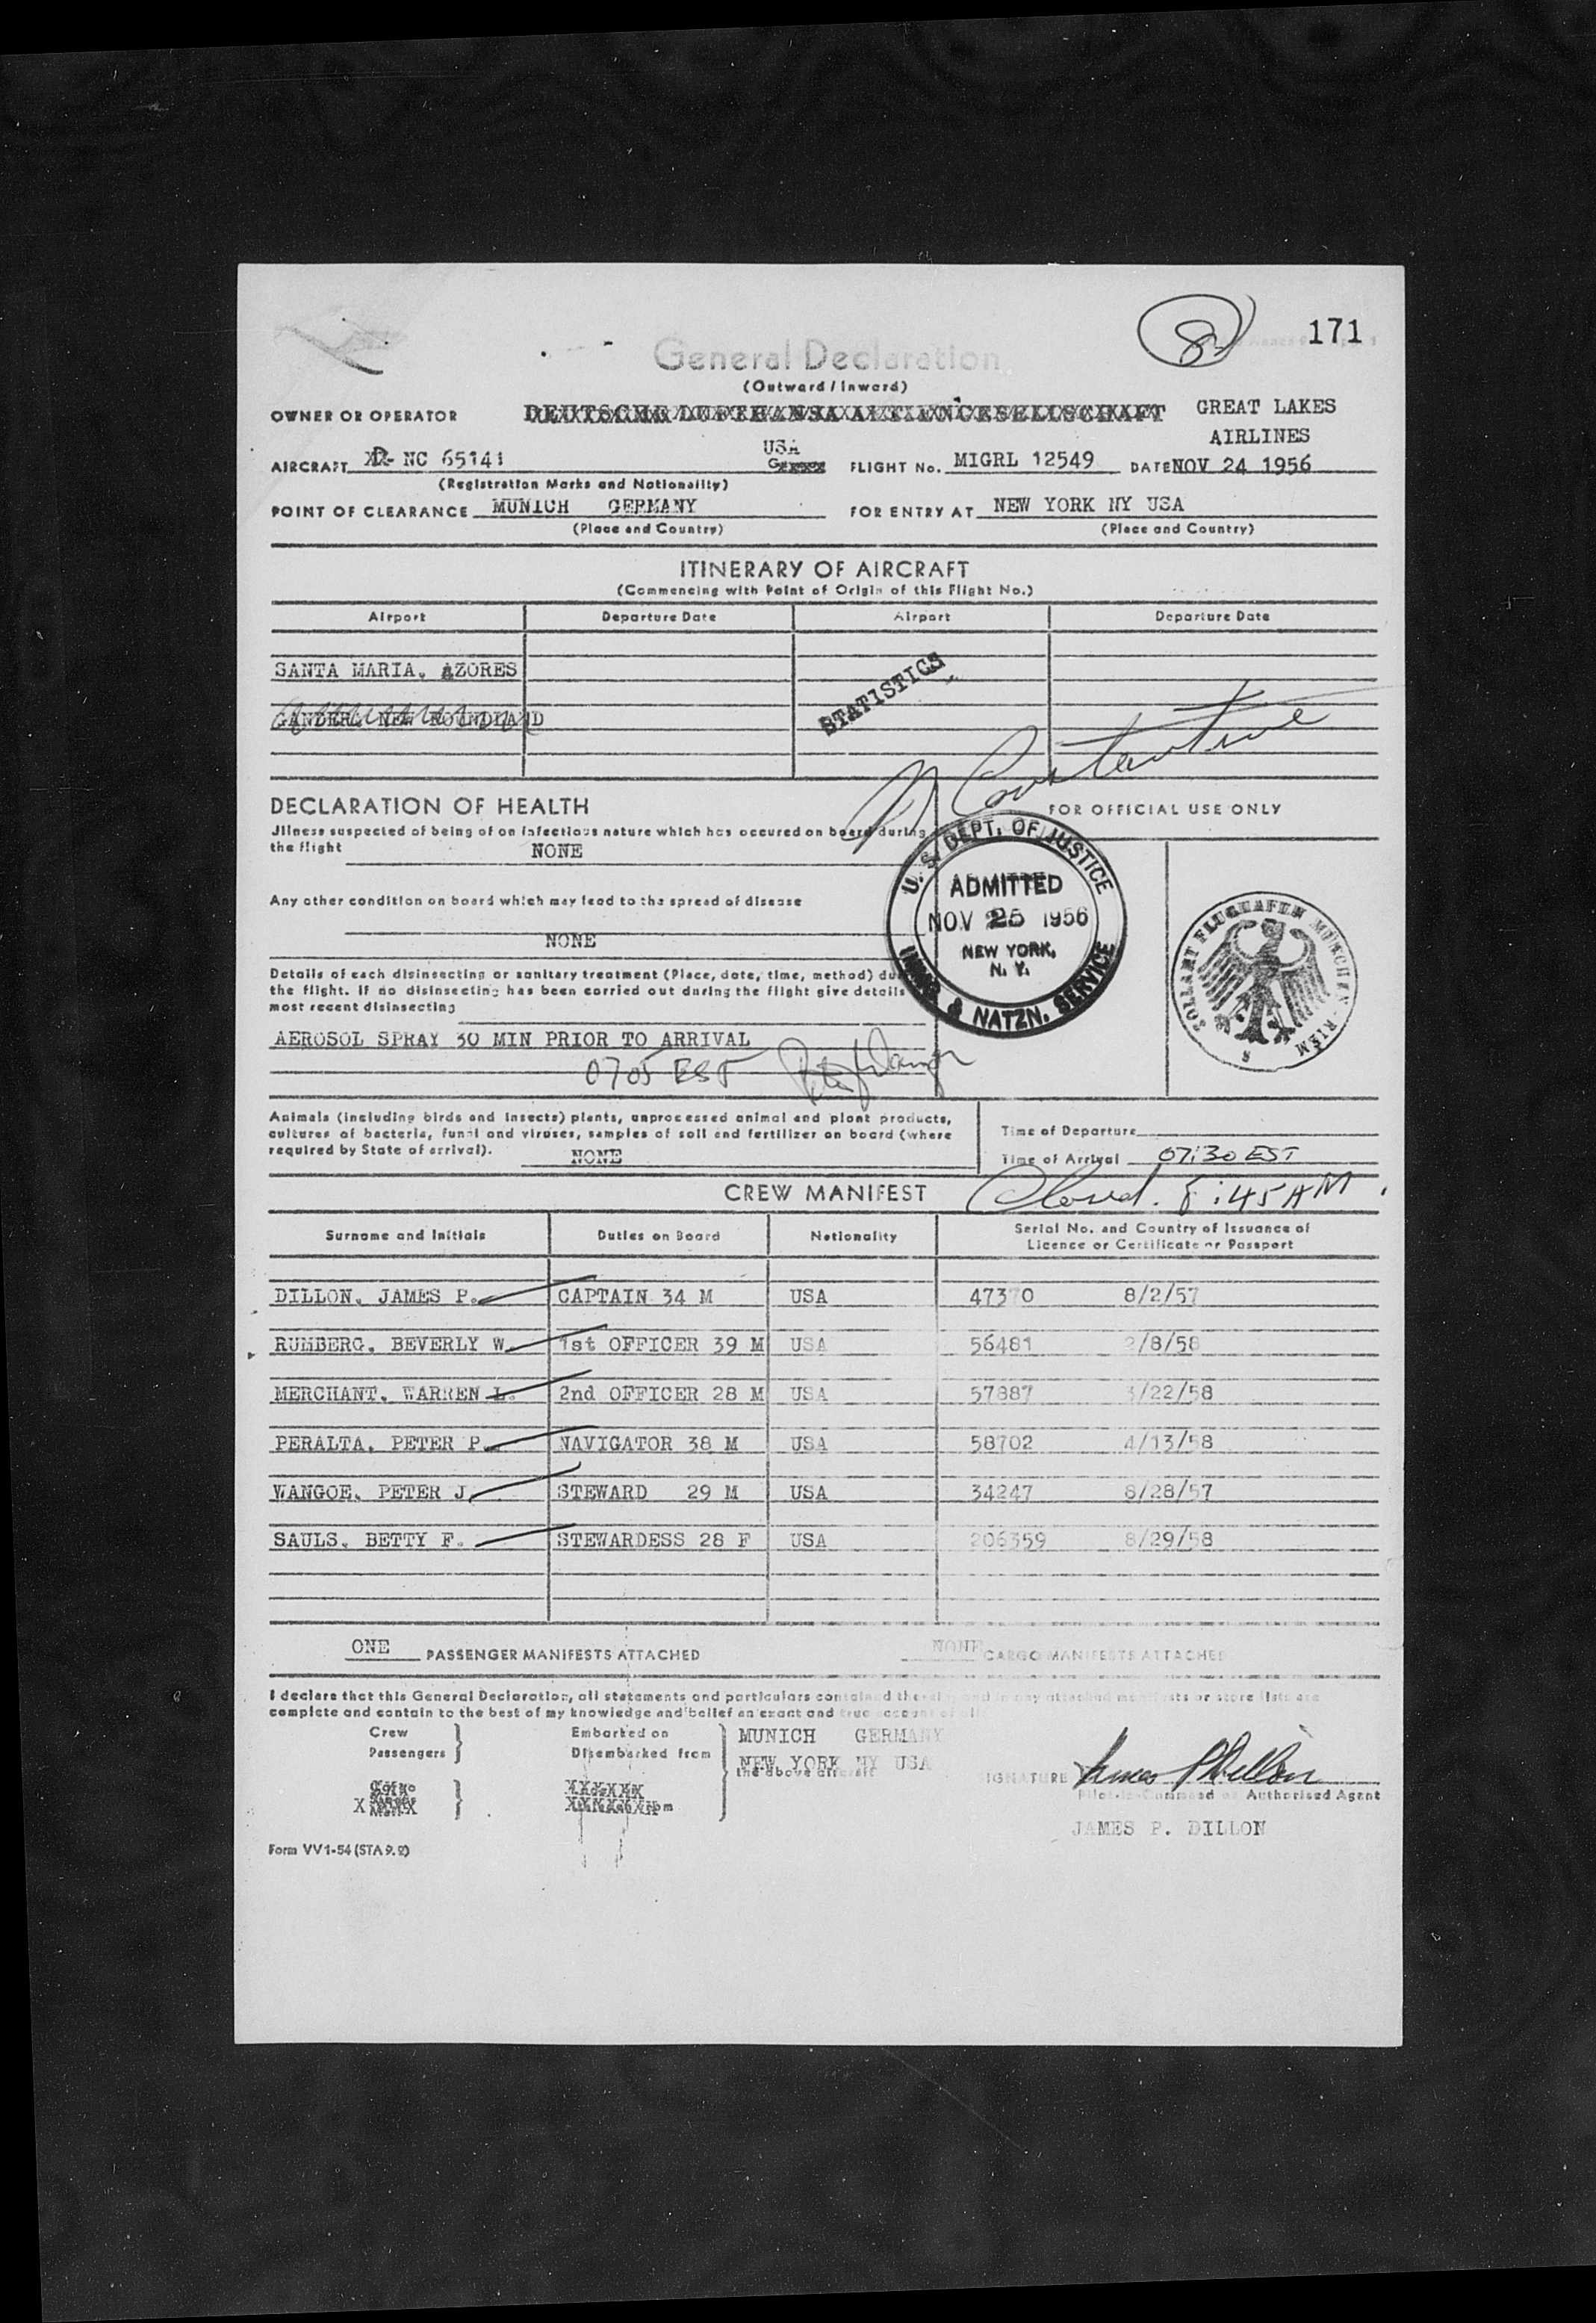 171
General Declaration
(Outward / Inward)
OWNER OR OPERATOR DEUTSCHE LUFTHANSA AKTIENGESELLSCHAFT GREAT LAKES
AIRLINES
USA
AIRCRAFT NC 65141 FLIGHT No. MIGRL 12549 DATE NOV 24 1956
(Registration Marks and Nationality)
POINT OF CLEARANCE MUNICH GERMANY FOR ENTRY AT NEW YORK NY USA
(Place and Country) (Place and Country)
ITINERARY OF AIRCRAFT
(Commencing with Point of Origin of this Flight No.)
Airport Departure Date Airport Departure Date
SANTA MARIA, AZORES
STATISTICS
GANDER, NEW FOUNDLAND
Constantine
DECLARATION OF HEALTH FOR OFFICIAL USE ONLY
Jllness suspected of being of an infectious nature which has occured on board during
the flight NONE
U. S. DEPT. OF JUSTICE
ADMITTED
NOV 25 1956
NEW YORK,
N. Y.
IMMIG. & NATZN. SERVICE
ZOLLAMT FLUGHAFEN MÜNCHEN-RIEM
Any other condition on board which may lead to the spread of disease
NONE
Details of each disinsecting or sanitary treatment (Place, date, time, method) du
the flight. If no disinsecting has been carried out during the flight give details
most recent disinsecting
AEROSOL SPRAY 30 MIN PRIOR TO ARRIVAL
0705 EST
Animals (including birds and insects) plants, unprocessed animal and plant products,
cultures of bacteria, fungi and viruses, samples of soil and fertilizer on board (where
required by State of arrival). NONE
Time of Departure
Time of Arrival 07:30 EST
CREW MANIFEST Closed. 8:45 AM.
Surname and Initials Duties on Board Nationality Serial No. and Country of Issuance of
Licence or Certificate or Passport
DILLON, JAMES P. CAPTAIN 34 M USA 47370 8/2/57
RUMBERG, BEVERLY W. 1st OFFICER 39 M USA 56481 2/8/58
MERCHANT, WARREN L. 2nd OFFICER 28 M USA 57887 3/22/58
PERALTA, PETER P. NAVIGATOR 38 M USA 58702 4/13/58
WANGOE, PETER J. STEWARD 29 M USA 34247 8/28/57
SAULS, BETTY F. STEWARDESS 28 F USA 206359 8/29/58
ONE PASSENGER MANIFESTS ATTACHED NONE CARGO MANIFESTS ATTACHED
I declare that this General Declaration, all statements and particulars contained therein and in any attached manifests or store lists are
complete and contain to the best of my knowledge and belief an exact and true account of all
Crew Embarked on MUNICH GERMANY
Passengers Disembarked from NEW YORK NY USA
the above aircraft
SIGNATURE James P Dillon
Pilot-in-Command or Authorised Agent
JAMES P. DILLON
Form VV1-54 (STA 9.2)